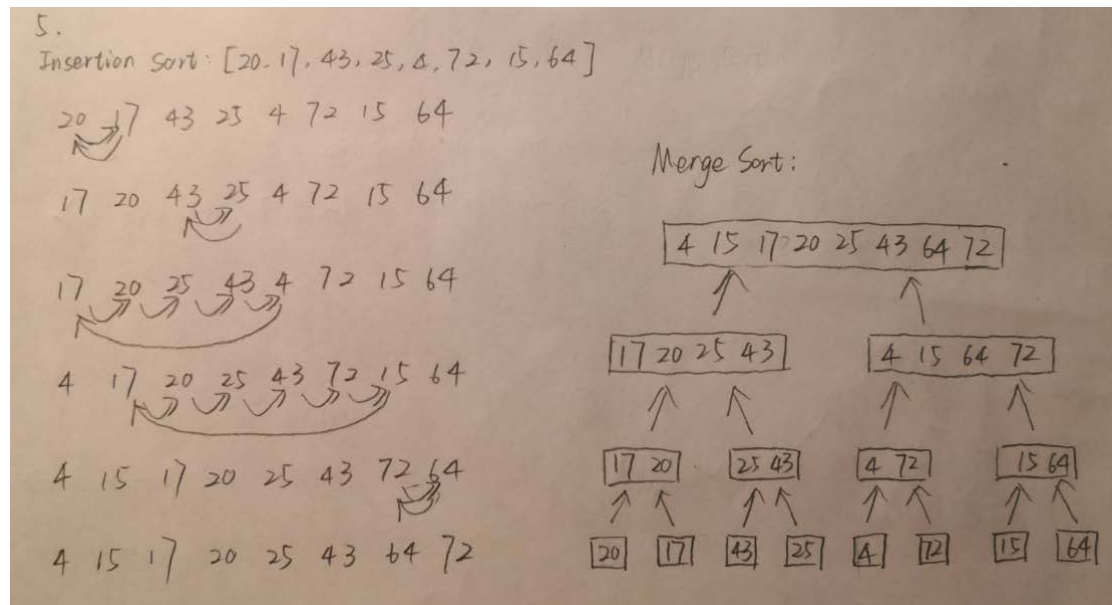 5.
Insertion Sort: [20, 17, 43, 25, 4, 72, 15, 64]
20 17 43 25 4 72 15 64
17 20 43 25 4 72 15 64
17 20 25 43 4 72 15 64
4 17 20 25 43 72 15 64
4 15 17 20 25 43 72 64
4 15 17 20 25 43 64 72
Merge Sort:
4 15 17 20 25 43 64 72
17 20 25 43 4 15 64 72
17 20 25 43 4 72 15 64
20 17 43 25 4 72 15 64